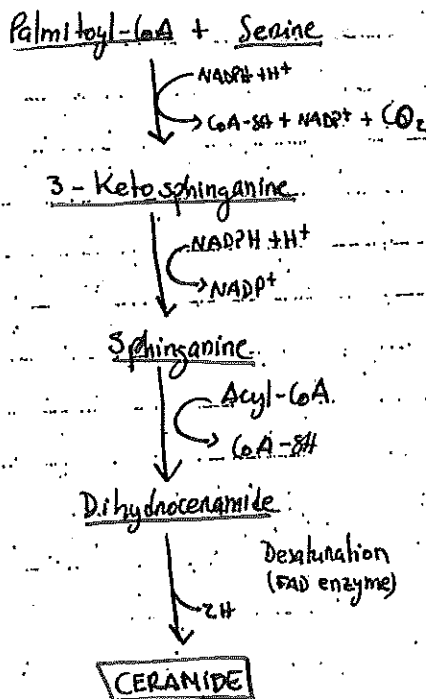 Palmitoyl-CoA + Serine
NADPH + H⁺
CoA-SH + NADP⁺ + CO₂
3-Ketosphinganine
NADPH + H⁺
NADP⁺
Sphinganine
Acyl-CoA
CoA-SH
Dihydroceramide
Desaturation
(FAD enzyme)
2H
CERAMIDE